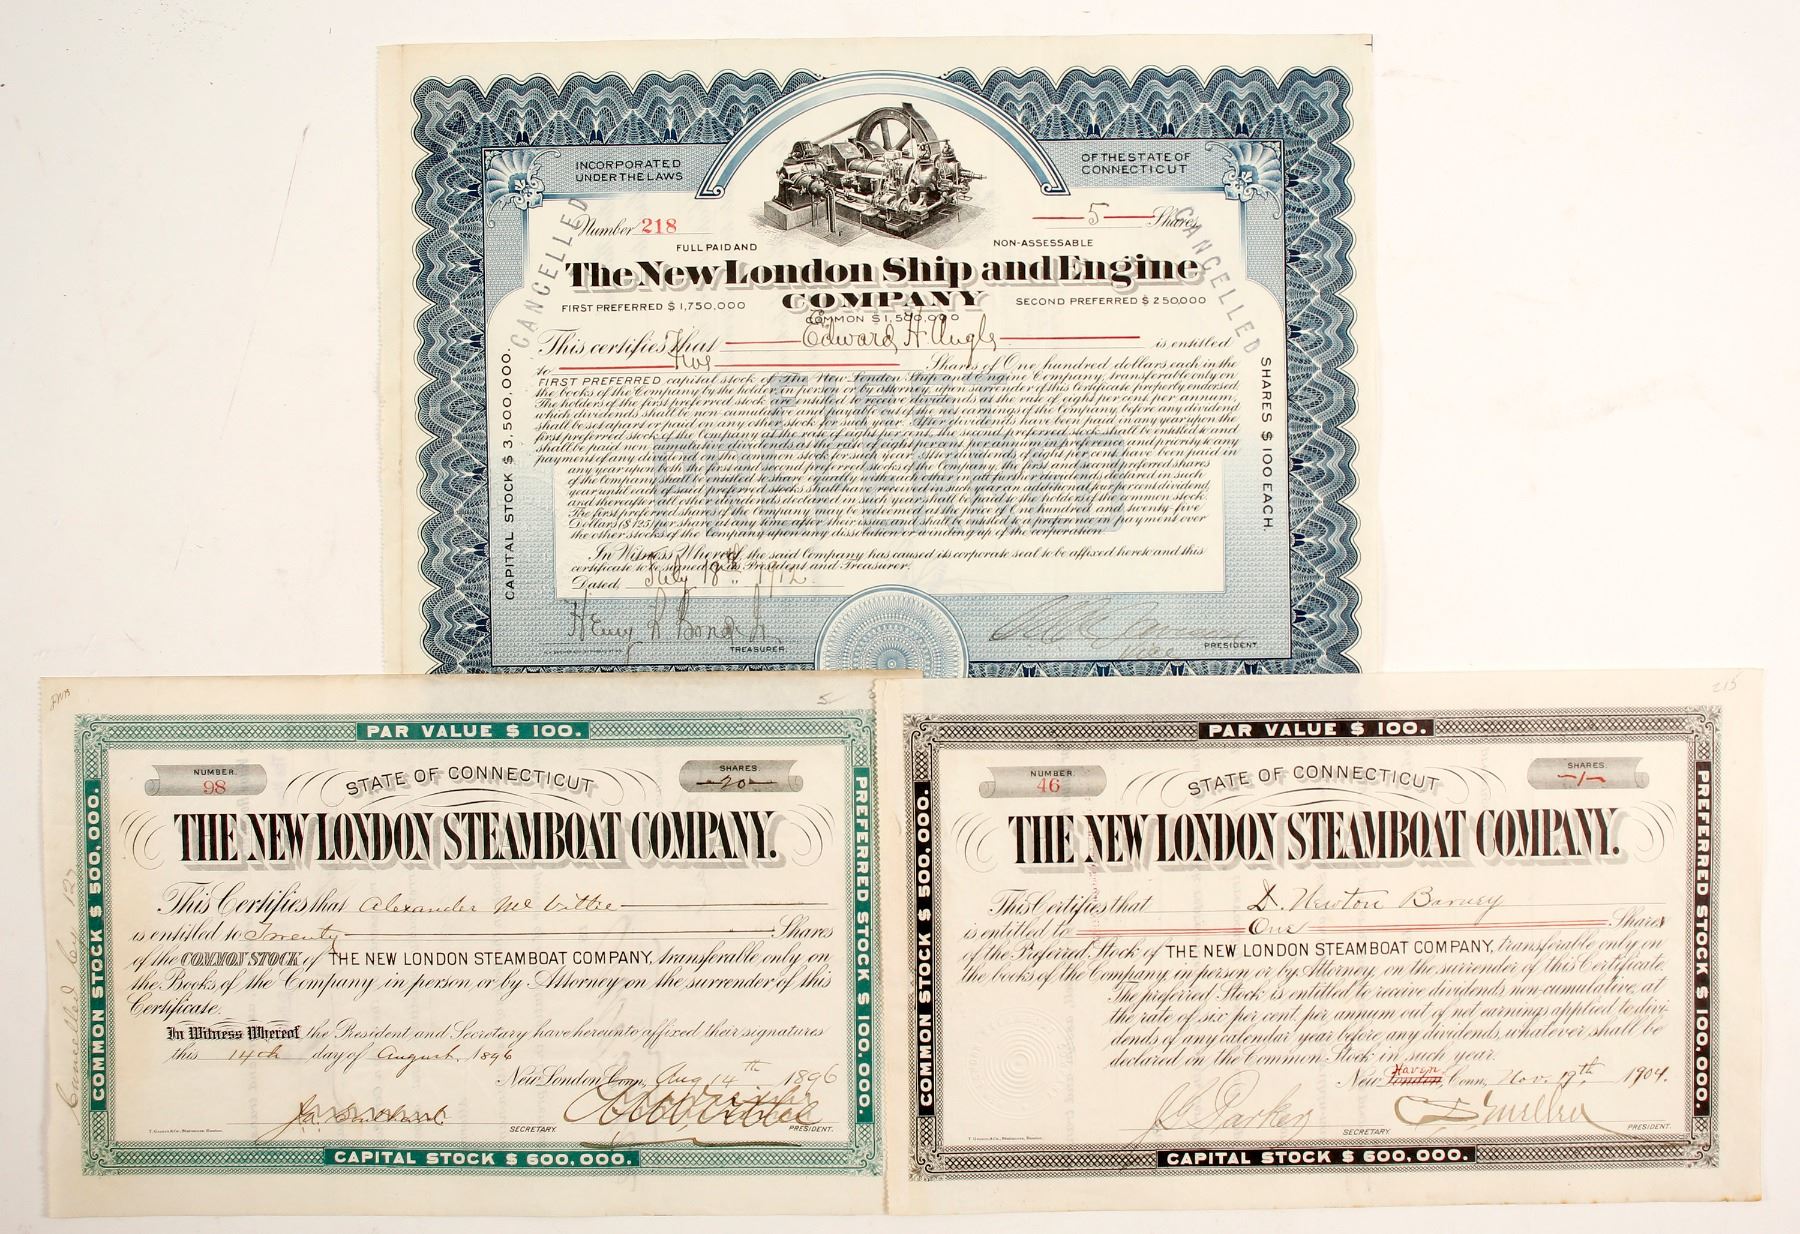 INCORPORATED
UNDER THE LAWS
OF THE STATE OF
CONNECTICUT
Number 218
5 Shares
CANCELLED
CANCELLED
FULL PAID AND
NON-ASSESSABLE
The New London Ship and Engine
COMPANY
FIRST PREFERRED $1,750,000
SECOND PREFERRED $250,000
COMMON $1,500,000
This certifies that Edward H. is entitled
to Five Shares of One hundred dollars each in the
FIRST PREFERRED capital stock of The New London Ship and Engine Company, transferable only on
the books of the Company by the holder in person or by attorney, upon surrender of this Certificate properly endorsed.
The holders of the first preferred stock are entitled to receive dividends at the rate of eight per cent per annum,
which dividends shall be non-cumulative and payable out of the net earnings of the Company, before any dividend
shall be set apart or paid on any other stock for such year. After dividends have been paid in any year upon the
first preferred stock of the Company at the rate of eight per cent, the second preferred stock shall be entitled to and
shall be paid non-cumulative dividends at the rate of eight per cent per annum in preference and priority to any
payment of any dividend on the common stock for such year. After dividends of eight per cent have been paid in
any year upon both the first and second preferred stocks of the Company, the first and second preferred shares
of the Company shall be entitled to share equally with each other in all further dividends declared in such
year until each of said preferred stocks shall have received in such year an additional four per cent dividend,
and thereafter all other dividends declared in such year shall be paid to the holders of the common stock.
The first preferred shares of the Company may be redeemed at the price of One hundred and twenty-five
Dollars ($125) per share at any time after their issue, and shall be entitled to a preference in payment over
the other stocks of the Company upon any dissolution or winding up of the corporation.
In Witness Whereof, the said Company has caused its corporate seal to be affixed hereto and this
certificate to be signed by its President and Treasurer.
Dated, July 18th 1912.
Henry R. Bond Jr.
TREASURER.
Vice PRESIDENT.
CAPITAL STOCK $3,500,000.
SHARES $100 EACH.
FIRST
5
PAR VALUE $100.
NUMBER.
98
STATE OF CONNECTICUT
SHARES.
20
THE NEW LONDON STEAMBOAT COMPANY.
This Certifies that Alexander McVittie
is entitled to Twenty Shares
of the COMMON STOCK of THE NEW LONDON STEAMBOAT COMPANY, transferable only on
the Books of the Company in person or by Attorney on the surrender of this
Certificate.
In Witness Whereof the President and Secretary have hereunto affixed their signatures
this 14th day of August, 1896
New London Conn. Aug 14th 1896
SECRETARY.
PRESIDENT.
CAPITAL STOCK $600,000.
COMMON STOCK $500,000.
PREFERRED STOCK $100,000.
Cancelled by 127
215
PAR VALUE $100.
NUMBER.
46
STATE OF CONNECTICUT
SHARES.
1
THE NEW LONDON STEAMBOAT COMPANY.
This Certifies that D. Newton Barney
is entitled to One Shares
of the Preferred Stock of THE NEW LONDON STEAMBOAT COMPANY, transferable only on
the books of the Company, in person or by Attorney, on the surrender of this Certificate.
The preferred Stock is entitled to receive dividends, non-cumulative, at
the rate of six per cent, per annum out of net earnings applied to divi-
dends of any calendar year before any dividends, whatever, shall be
declared on the Common Stock in such year.
New London Haven Conn. Nov. 17th 1904.
J. G. Parker
SECRETARY.
PRESIDENT.
CAPITAL STOCK $600,000.
COMMON STOCK $500,000.
PREFERRED STOCK $100,000.